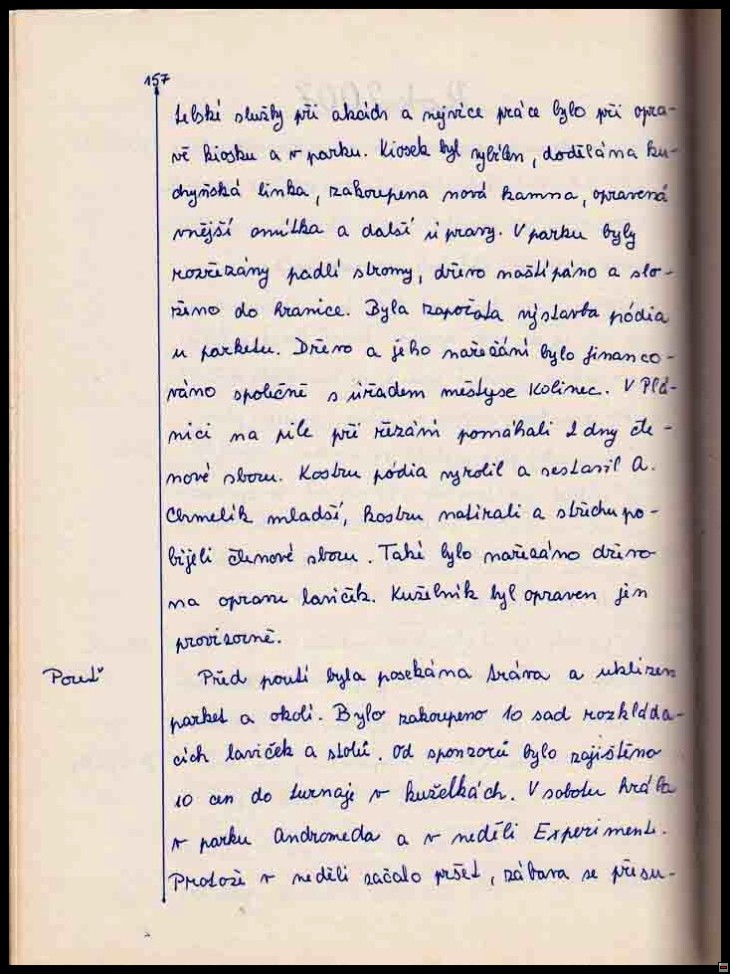 157
telské služby při akcích a nejvíce práce bylo při opra-
vě kiosku a v parku. Kiosek byl vybílen, dodělána ku-
chyňská linka, zakoupena nová kamna, opravená
vnější omítka a další úpravy. V parku byly
rozřezány padlé stromy, dřevo naštípáno a slo-
ženo do hranice. Byla započata výstavba pódia
u parketu. Dřevo a jeho nařezání bylo financo-
váno společně s úřadem městyse Kolinec. V Plá-
nici na pile při řezání pomáhali 2 dny čle-
nové sboru. Kostru pódia vyrobil a sestavil A.
Chmelík mladší, kostru natírali a střechu po-
bíjeli členové sboru. Také bylo nařezáno dřevo
na opravu laviček. Kuželník byl opraven jen
provizorně.
Pouť
Před poutí byla posekána tráva a uklizen
parket a okolí. Bylo zakoupeno 10 sad rozkláda-
cích laviček a stolů. Od sponzorů bylo zajištěno
10 cen do turnaje v kuželkách. V sobotu hrála
v parku Andromeda a v neděli Experiment.
Protože v neděli začalo pršet, zábava se přesu-